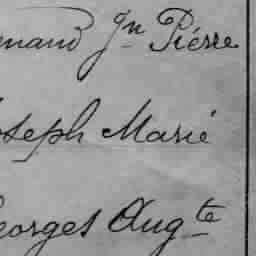 rnand Jn Pierre
oseph Marie
eorges Augte